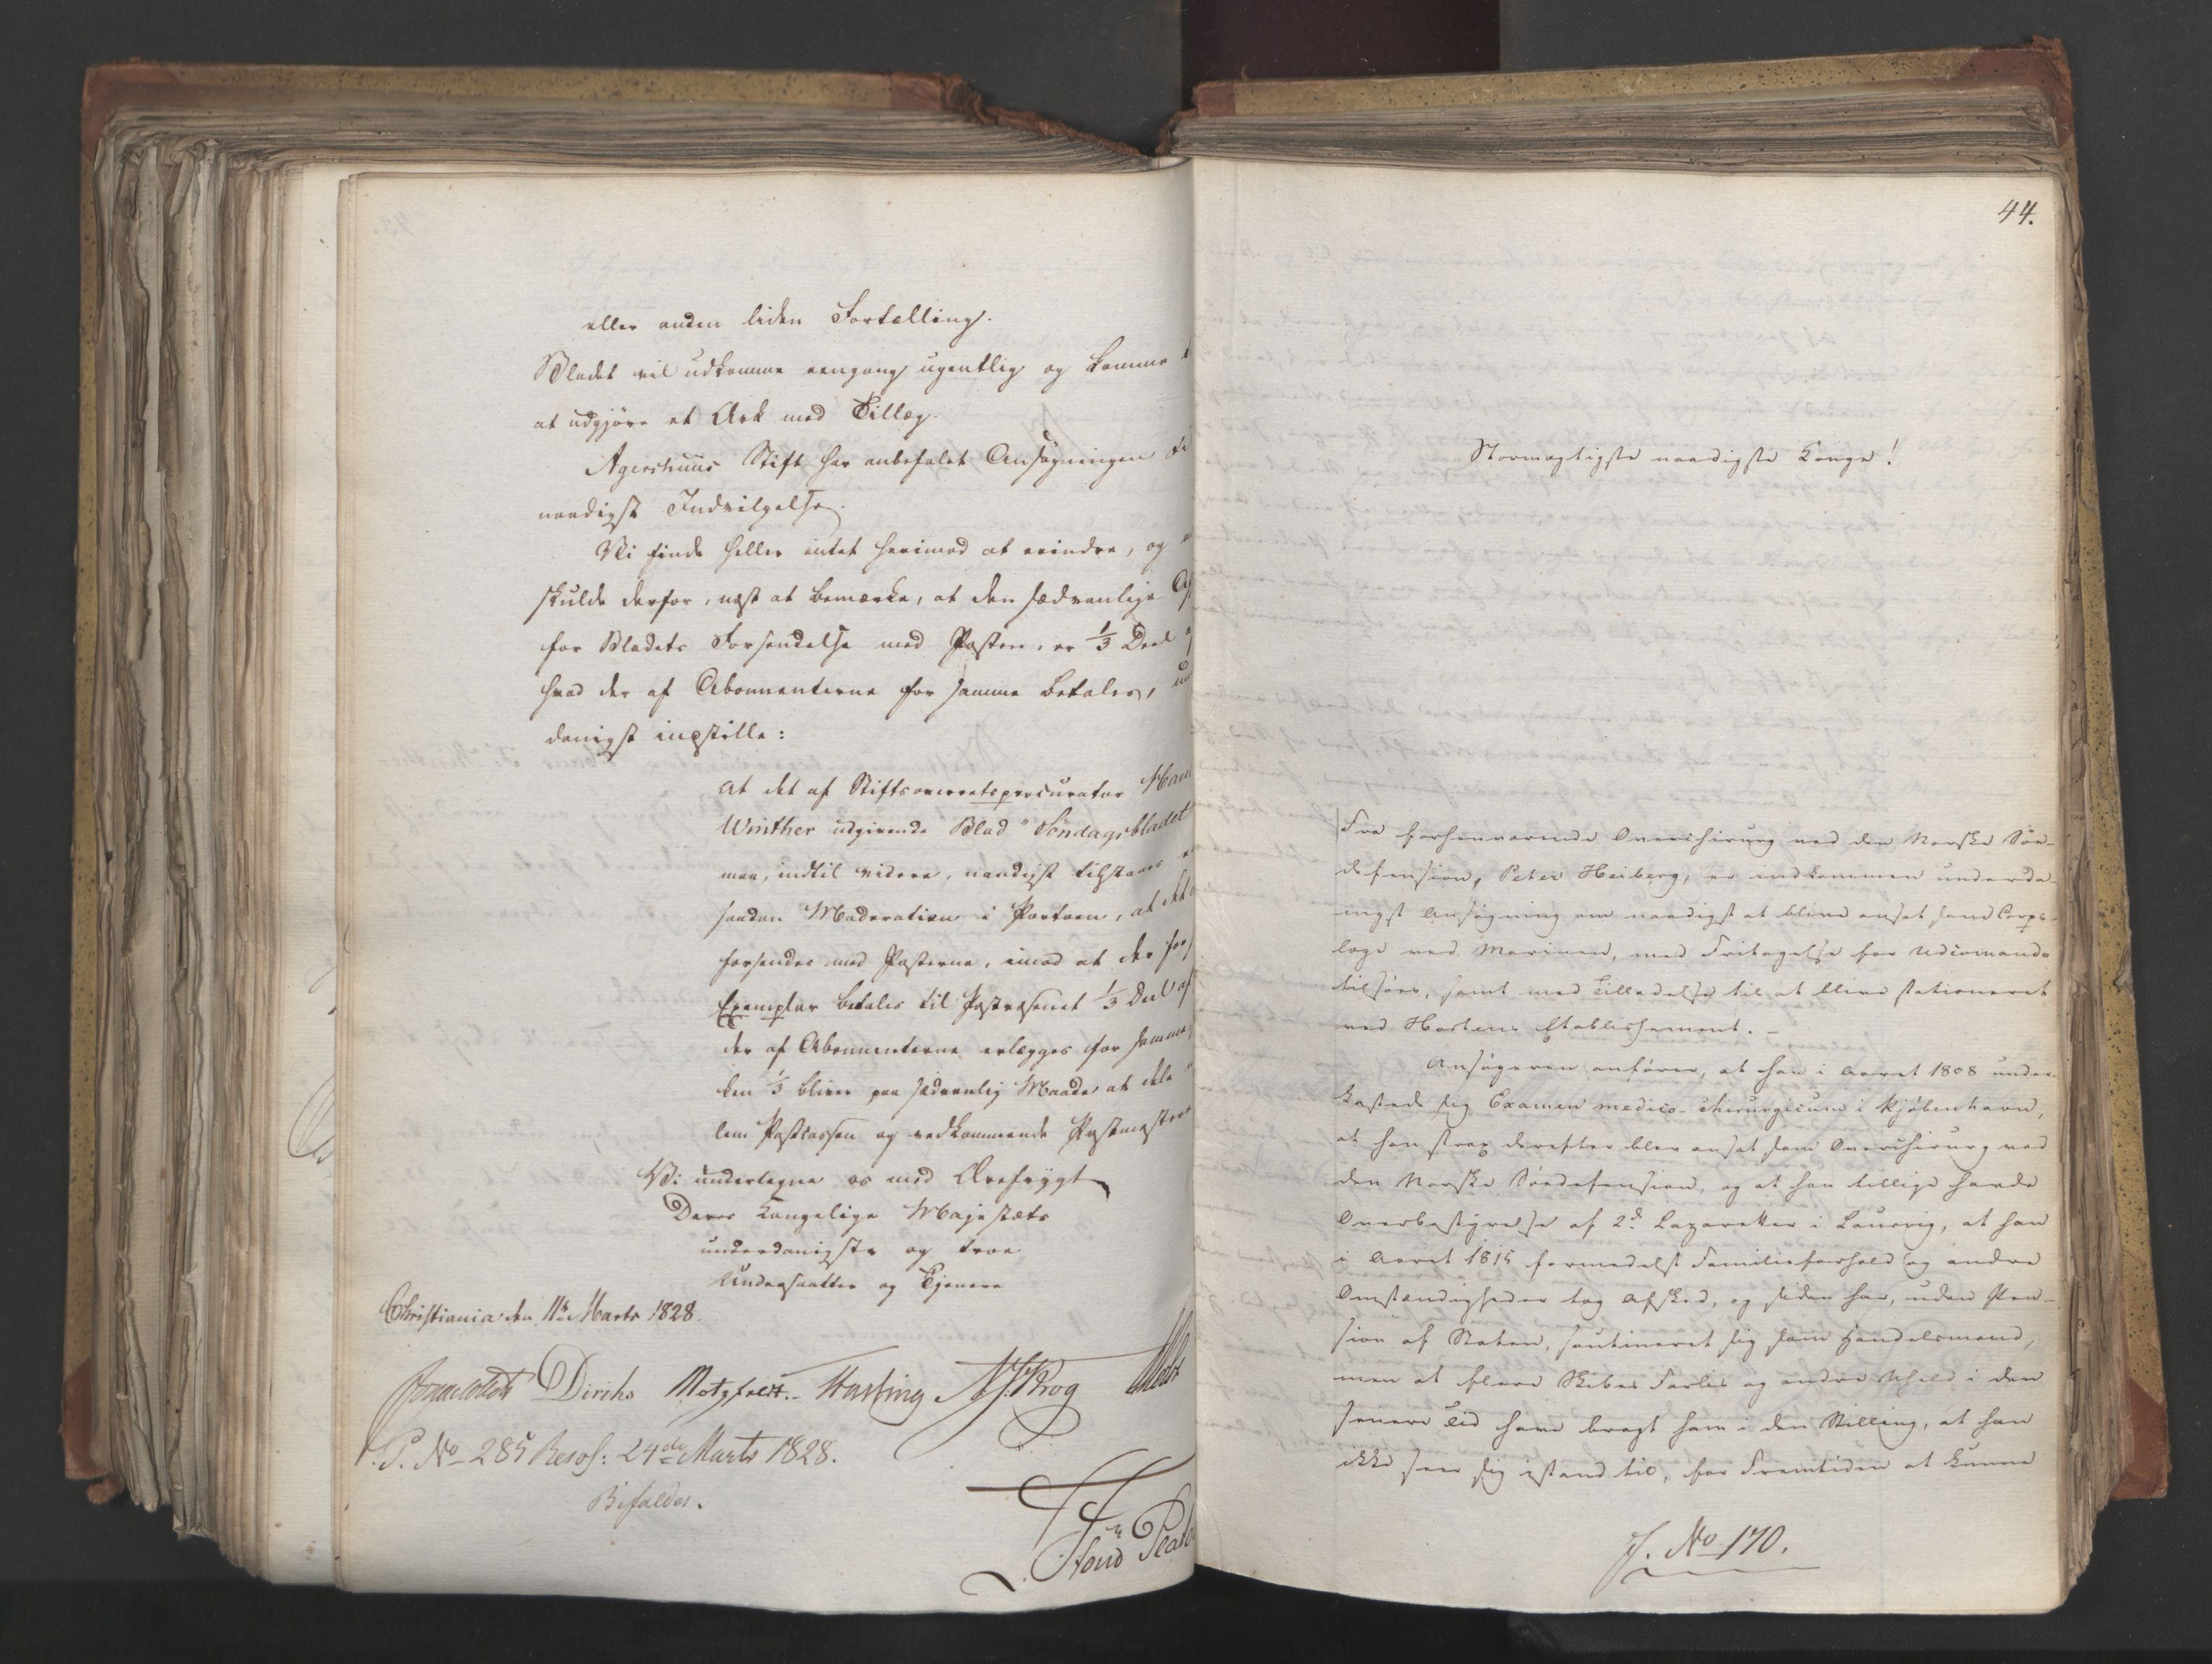 eller anden liden Fortælling.
Bladet vil udkomme eengang ugentlig og komme
at udgjøre et Ark med Tillæg.
Agershuus Stift har anbefalet Ansøgningen til
naadigst Indvilgelse.
Vi finde heller intet herimod at erindre, og
skulde derfor, næst at bemærke, at den sædvanlige
for Bladets Forsendelse med Posten, er 1/3 Deel
hvad der af Abonnenterne for samme betales,
danigst indstille:
at det af Stiftsoverretsprocurator
Winther udgivende Blad "Søndagsbladet
maa, indtil videre, naadigst tilstaaes
saadan Moderation i Portoen, at det
forsendes med Posterne, imod at der for
Exemplar betales til Postvæsenet 1/3 Deel af
der af Abonnenterne erlægges for samme,
ken 1/3 bliver paa sædvanlig Maade at dele
lem Postcassen og vedkommende Postmestere
Vi undertegne os med Ærefrygt
Deres Kongelige Majestæts
underdanigste og troe
Undersaatter og Tjenere
Christiania den 11te Marts 1828.
Jonas Collett Diriks Motzfeldt. Hasting N J Krog
P. No 285 Resol: 24de Marts 1828.
Bifaldes.
44.
Stormægtigste naadigste Konge!
Fra forhenværende Overchirurg ved den Norske Søe-
defension, Peter Heiberg, er indkommen underda-
nigst Ansøgning om naadigst at blive ansat som Corps-
læge ved Marinen, med Fritagelse for Udcomando
tilsøes, samt med Tilladelse til at blive stationeret
ved Hortens Etablissement. -
Ansøgeren anfører, at han i Aaret 1808 under-
kastede sig Examen medico-chirurgicum i Kjøbenhavn,
at han strax derefter blev ansat som Overchirurg ved
den Norske Søedefension, og at han tillige havde
Overbestyrelse af 2de Lazaretter i Laurvig, at han
i Aaret 1815 formedelst Familieforhold og andre
Omstændigheder tog Afsked, og siden har, uden Pen-
sion af Staten, soutineret sig som Handelsmand,
men at flere Skibes Forliis og andre Uheld i den
senere Tid have bragt ham i den Stilling, at han
ikke seer sig istand til, for Fremtiden at kunne
J. No 170.